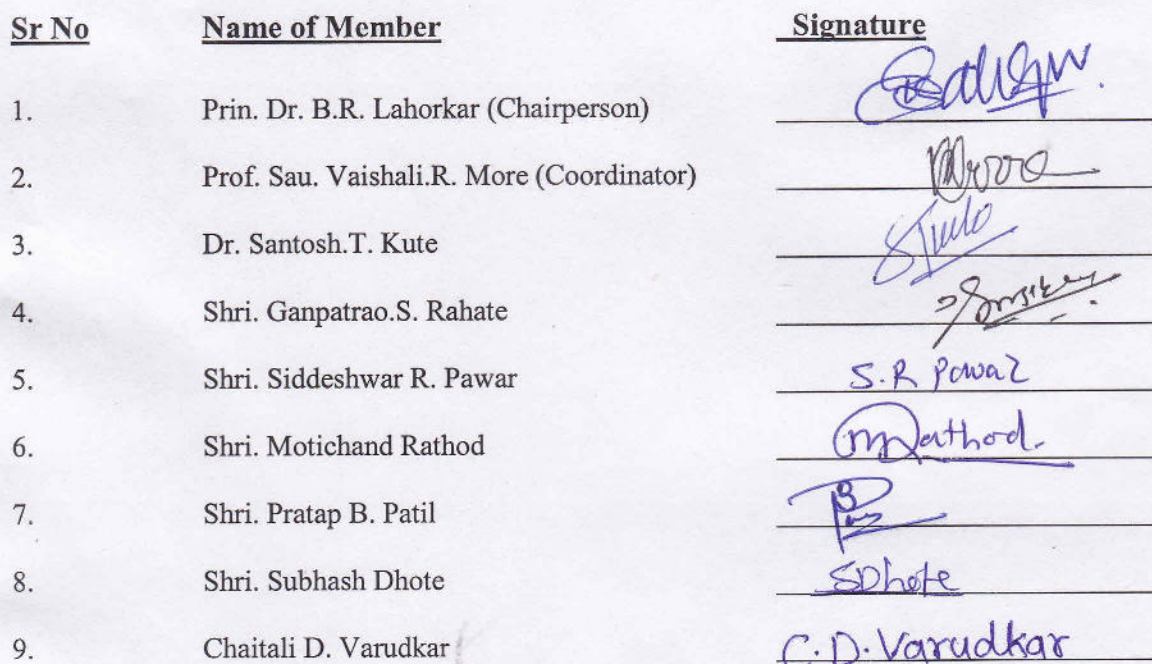 Sr No Name of Member Signature
1. Prin. Dr. B.R. Lahorkar (Chairperson)
2. Prof. Sau. Vaishali.R. More (Coordinator)
3. Dr. Santosh.T. Kute
4. Shri. Ganpatrao.S. Rahate
5. Shri. Siddeshwar R. Pawar S.R Pawar
6. Shri. Motichand Rathod MRathod.
7. Shri. Pratap B. Patil
8. Shri. Subhash Dhote SDhote
9. Chaitali D. Varudkar C.D. Varudkar